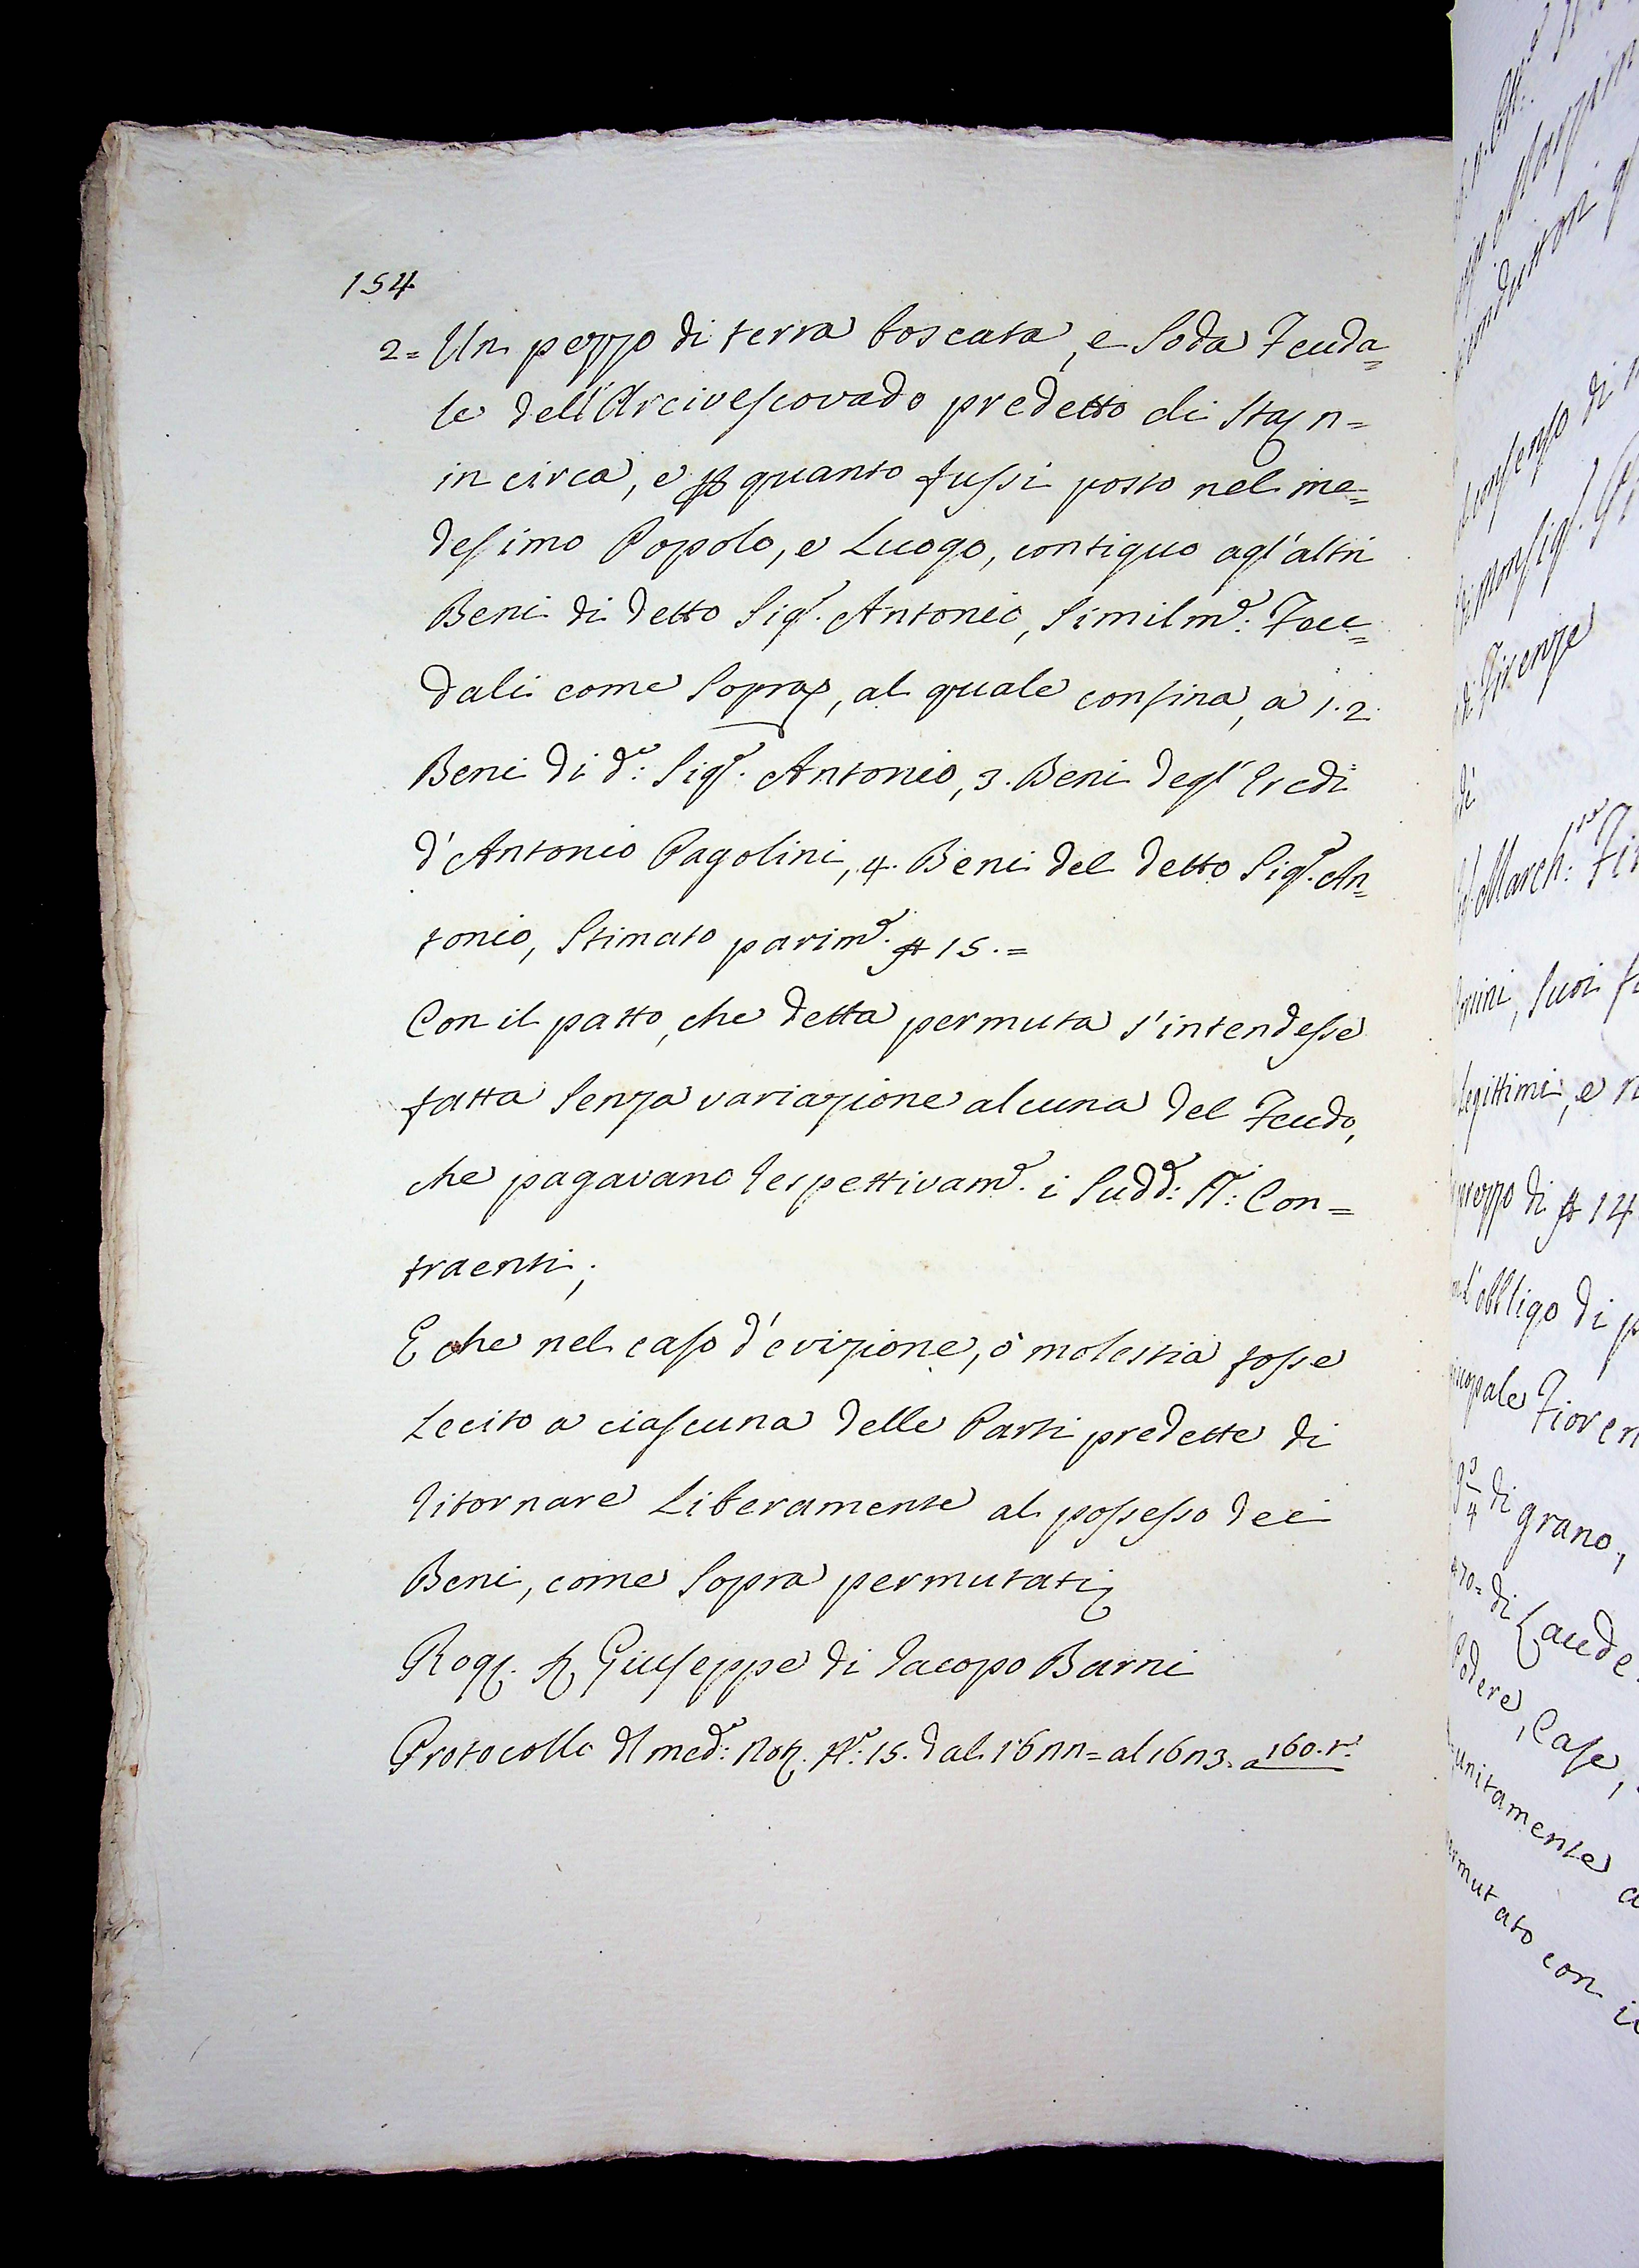 154
2= Un pezzo di terra boscata, e Soda Feuda=
le dell'Arcivescovado predetto di Staj n=
in circa, e p quanto fussi posto nel me=
desimo Popolo, e Luogo, contiguo agl'altri
Beni di detto Sigr. Antonio, Similmte: Feu=
dali come Sopra, al quale confina, a 1. 2.
Beni di do: Sigr. Antonio, 3. Beni degl'Eredi
d'Antonio Pagolini, 4. Beni del detto Sigr. An=
tonio, Stimato parimte. 15.=
Con il patto, che detta permuta s'intendesse
fatta Senza variazione alcuna del Feudo,
che pagavano respettivamte. i Sudd: SS.ri: Con=
traenti;
E che nel caso d'evizione, ò molestia fosse
Lecito a ciascuna delle Parti predette di
ritornare Liberamente al possesso dei
Beni, come Sopra permutati
Rog. Giuseppe di Iacopo Barni
Protocollo dl med: Not. 15. dal 16nn= al 16n3. a 160. to.
consenso di
di monsigr.
di Firenze
March:
Suoi
legittimi, e
prezzo di 14
l'obbligo di
di grano,
di Laude
Podere, Case,
unitamente
con